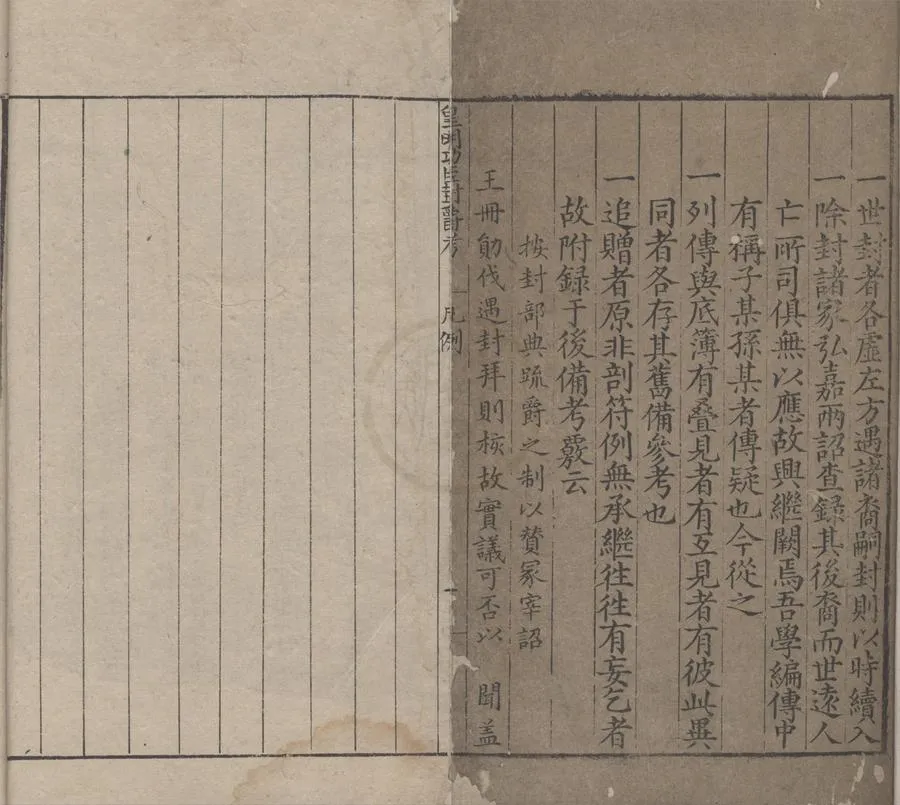 一世封者各虛左方遇諸裔嗣封則以時續入
一除封諸家弘嘉兩詔查録其後裔而世遠人
亡所司俱無以應故興繼闕焉吾學編傳中
有稱子某孫某者傳疑也今從之
一列傳與底簿有疊見者有互見者有彼此異
同者各存其舊備參考也
一追贈者原非剖符例無承繼徃徃有妄乞者
故附録于後備考覈云
按封部典䟽爵之制以贊冡宰詔
王冊勛伐遇封拜則核故實議可否以 聞盖
皇明功臣封爵考 凡例